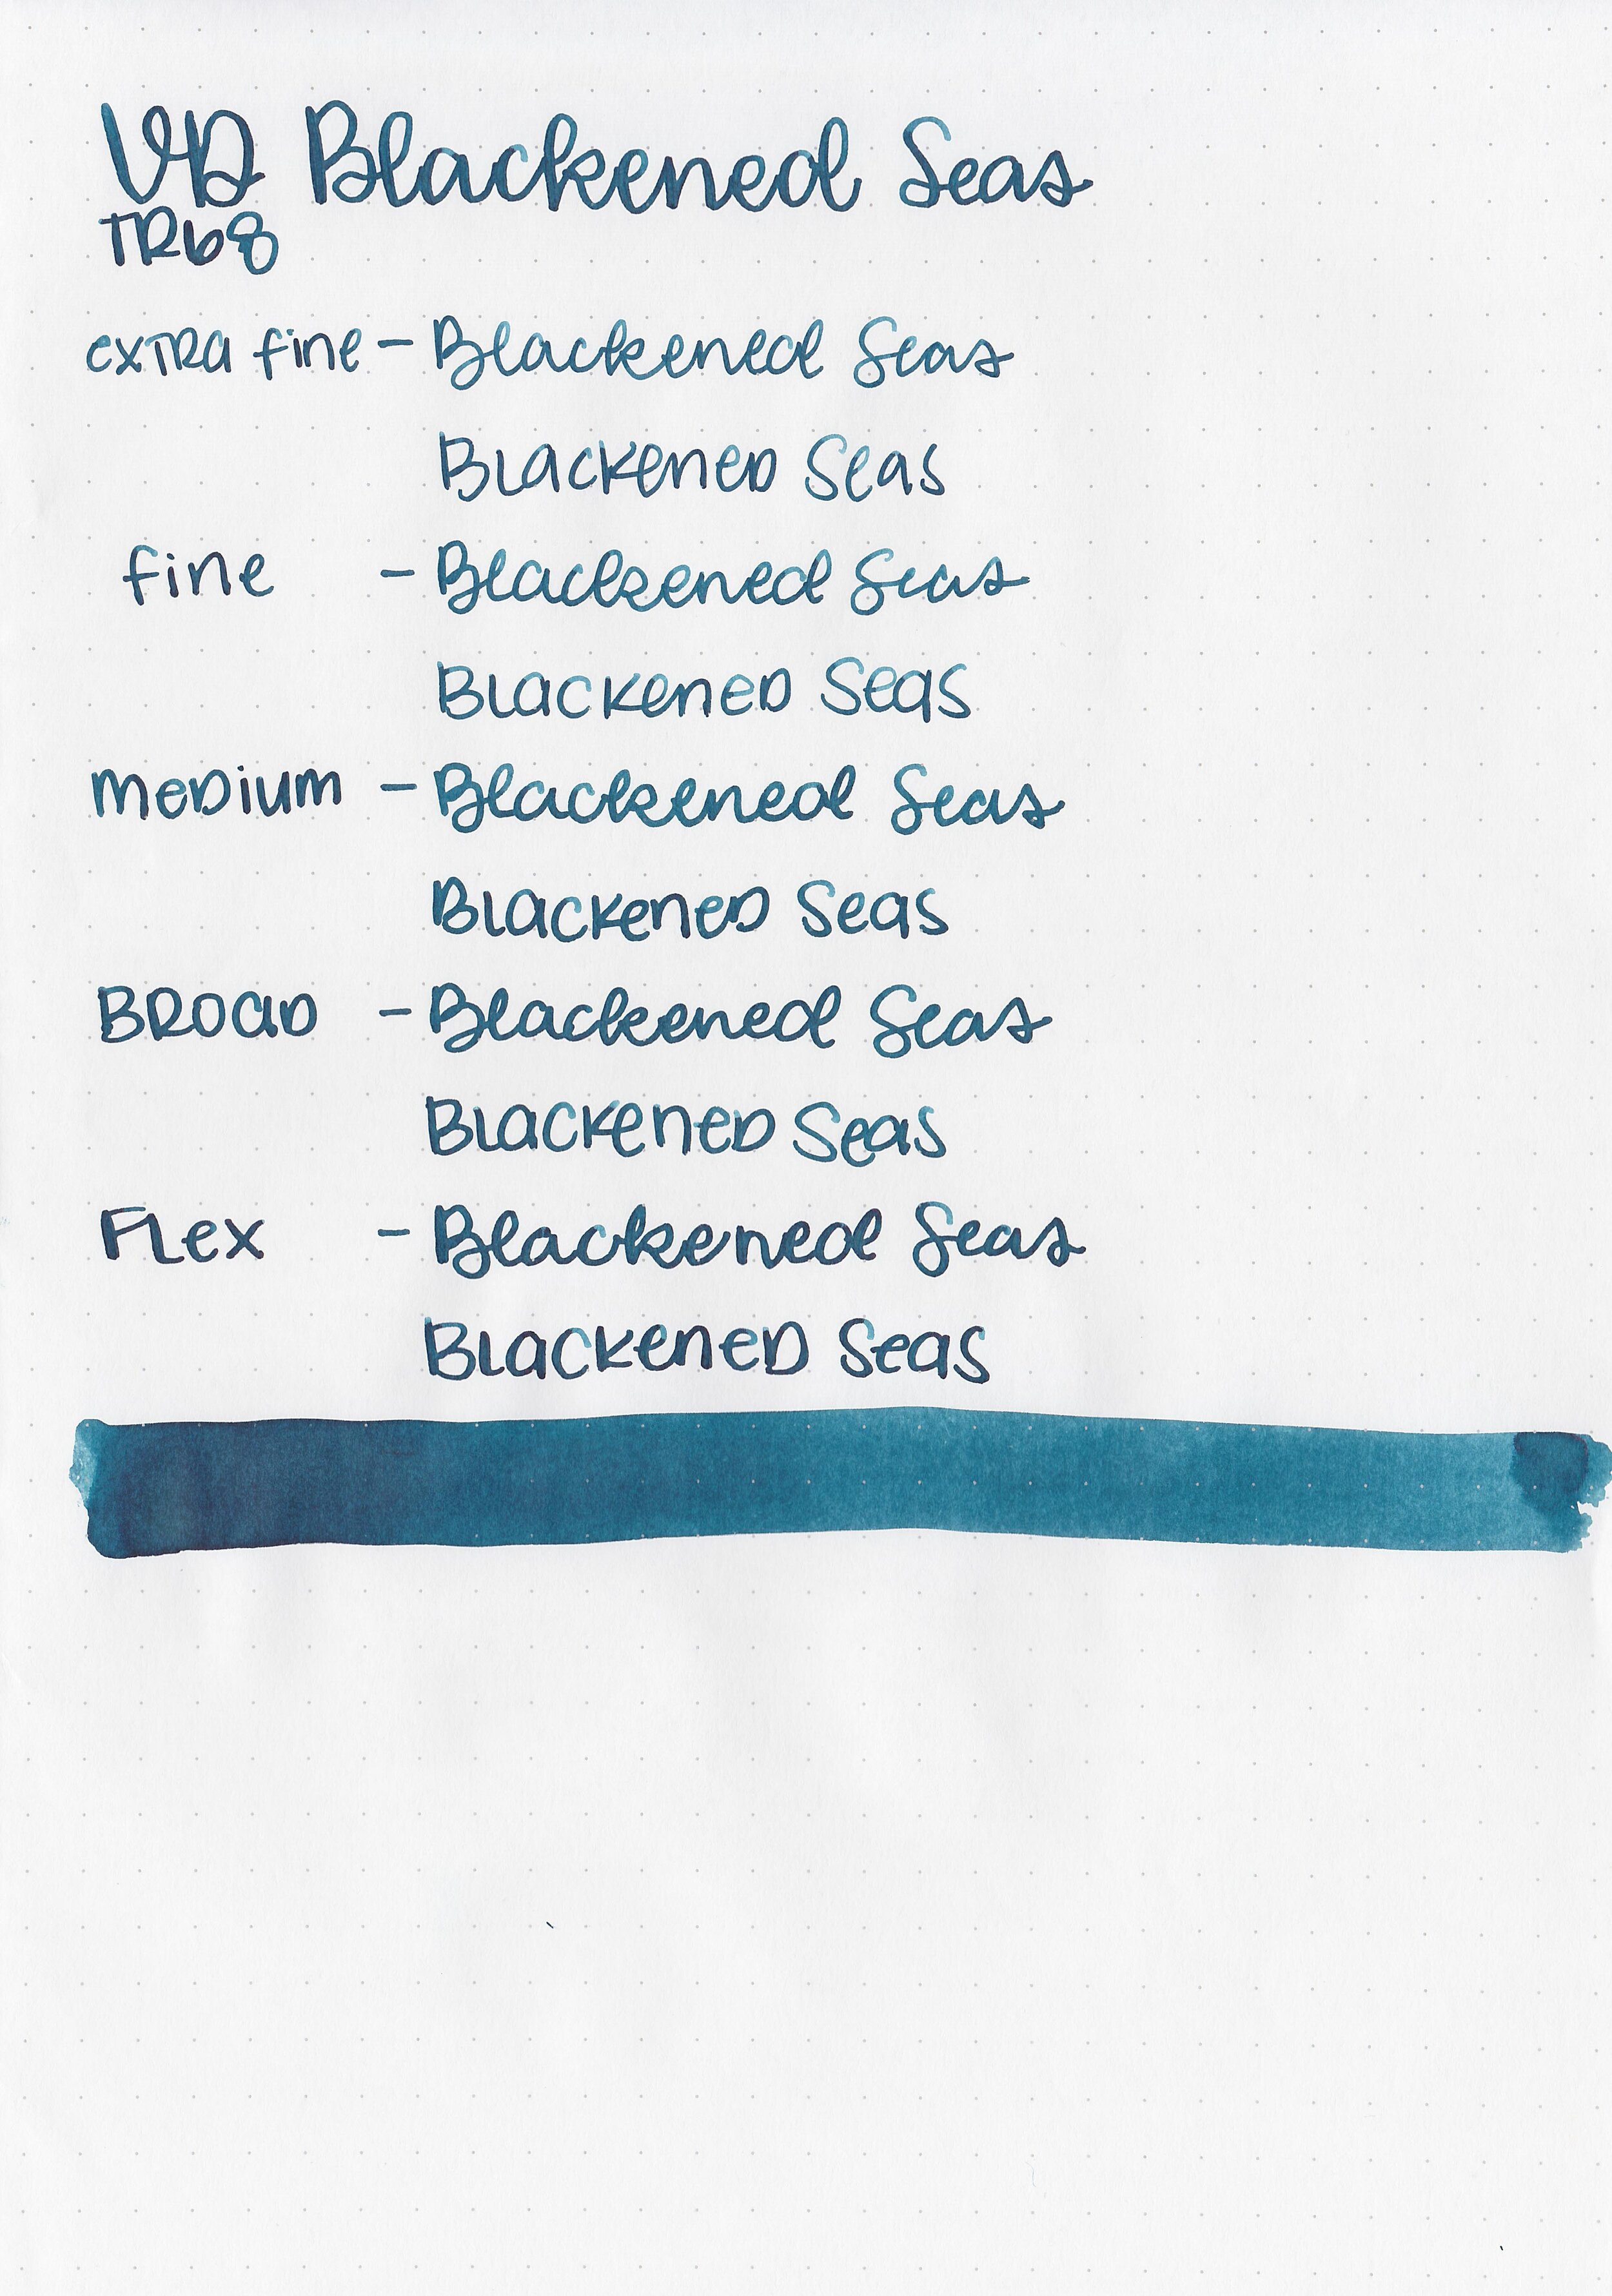 VD Blackened Seas
TR68
exTRa fine - Blackened Seas
BLackeneD Seas
fine - Blackened Seas
BLackeneD Seas
meDium - Blackened Seas
BLackeneD Seas
BROaD - Blackened Seas
BLackeneD Seas
FLex - Blackened Seas
BLackeneD Seas